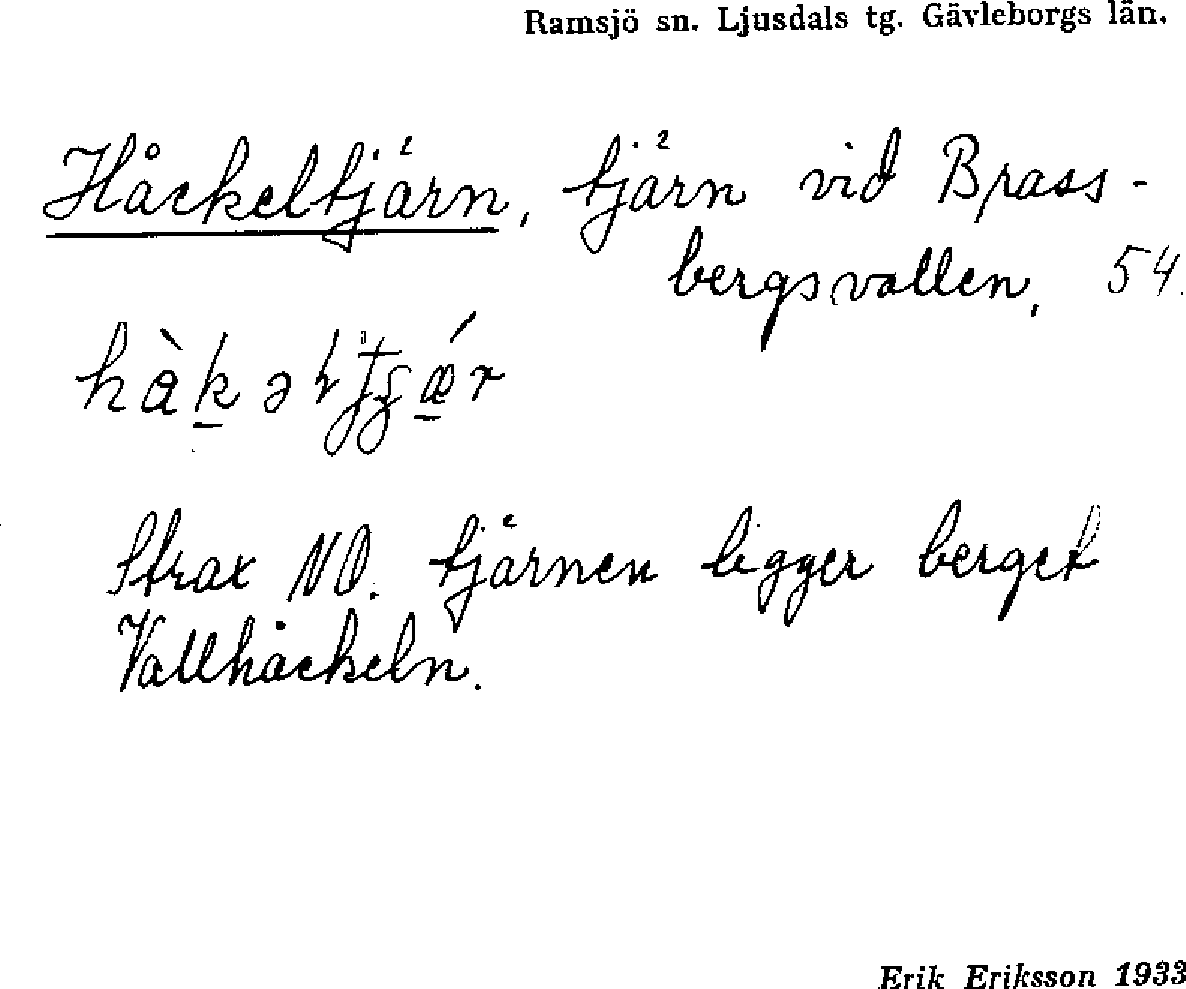 Ramsjö sn. Ljusdals tg. Gävleborgs län.
Håckeltjärn, tjärn vid Brass-
bergsvallen, 54.
Strax NO. tjärnen ligger berget
Vallhåckeln.
Erik Eriksson 1933